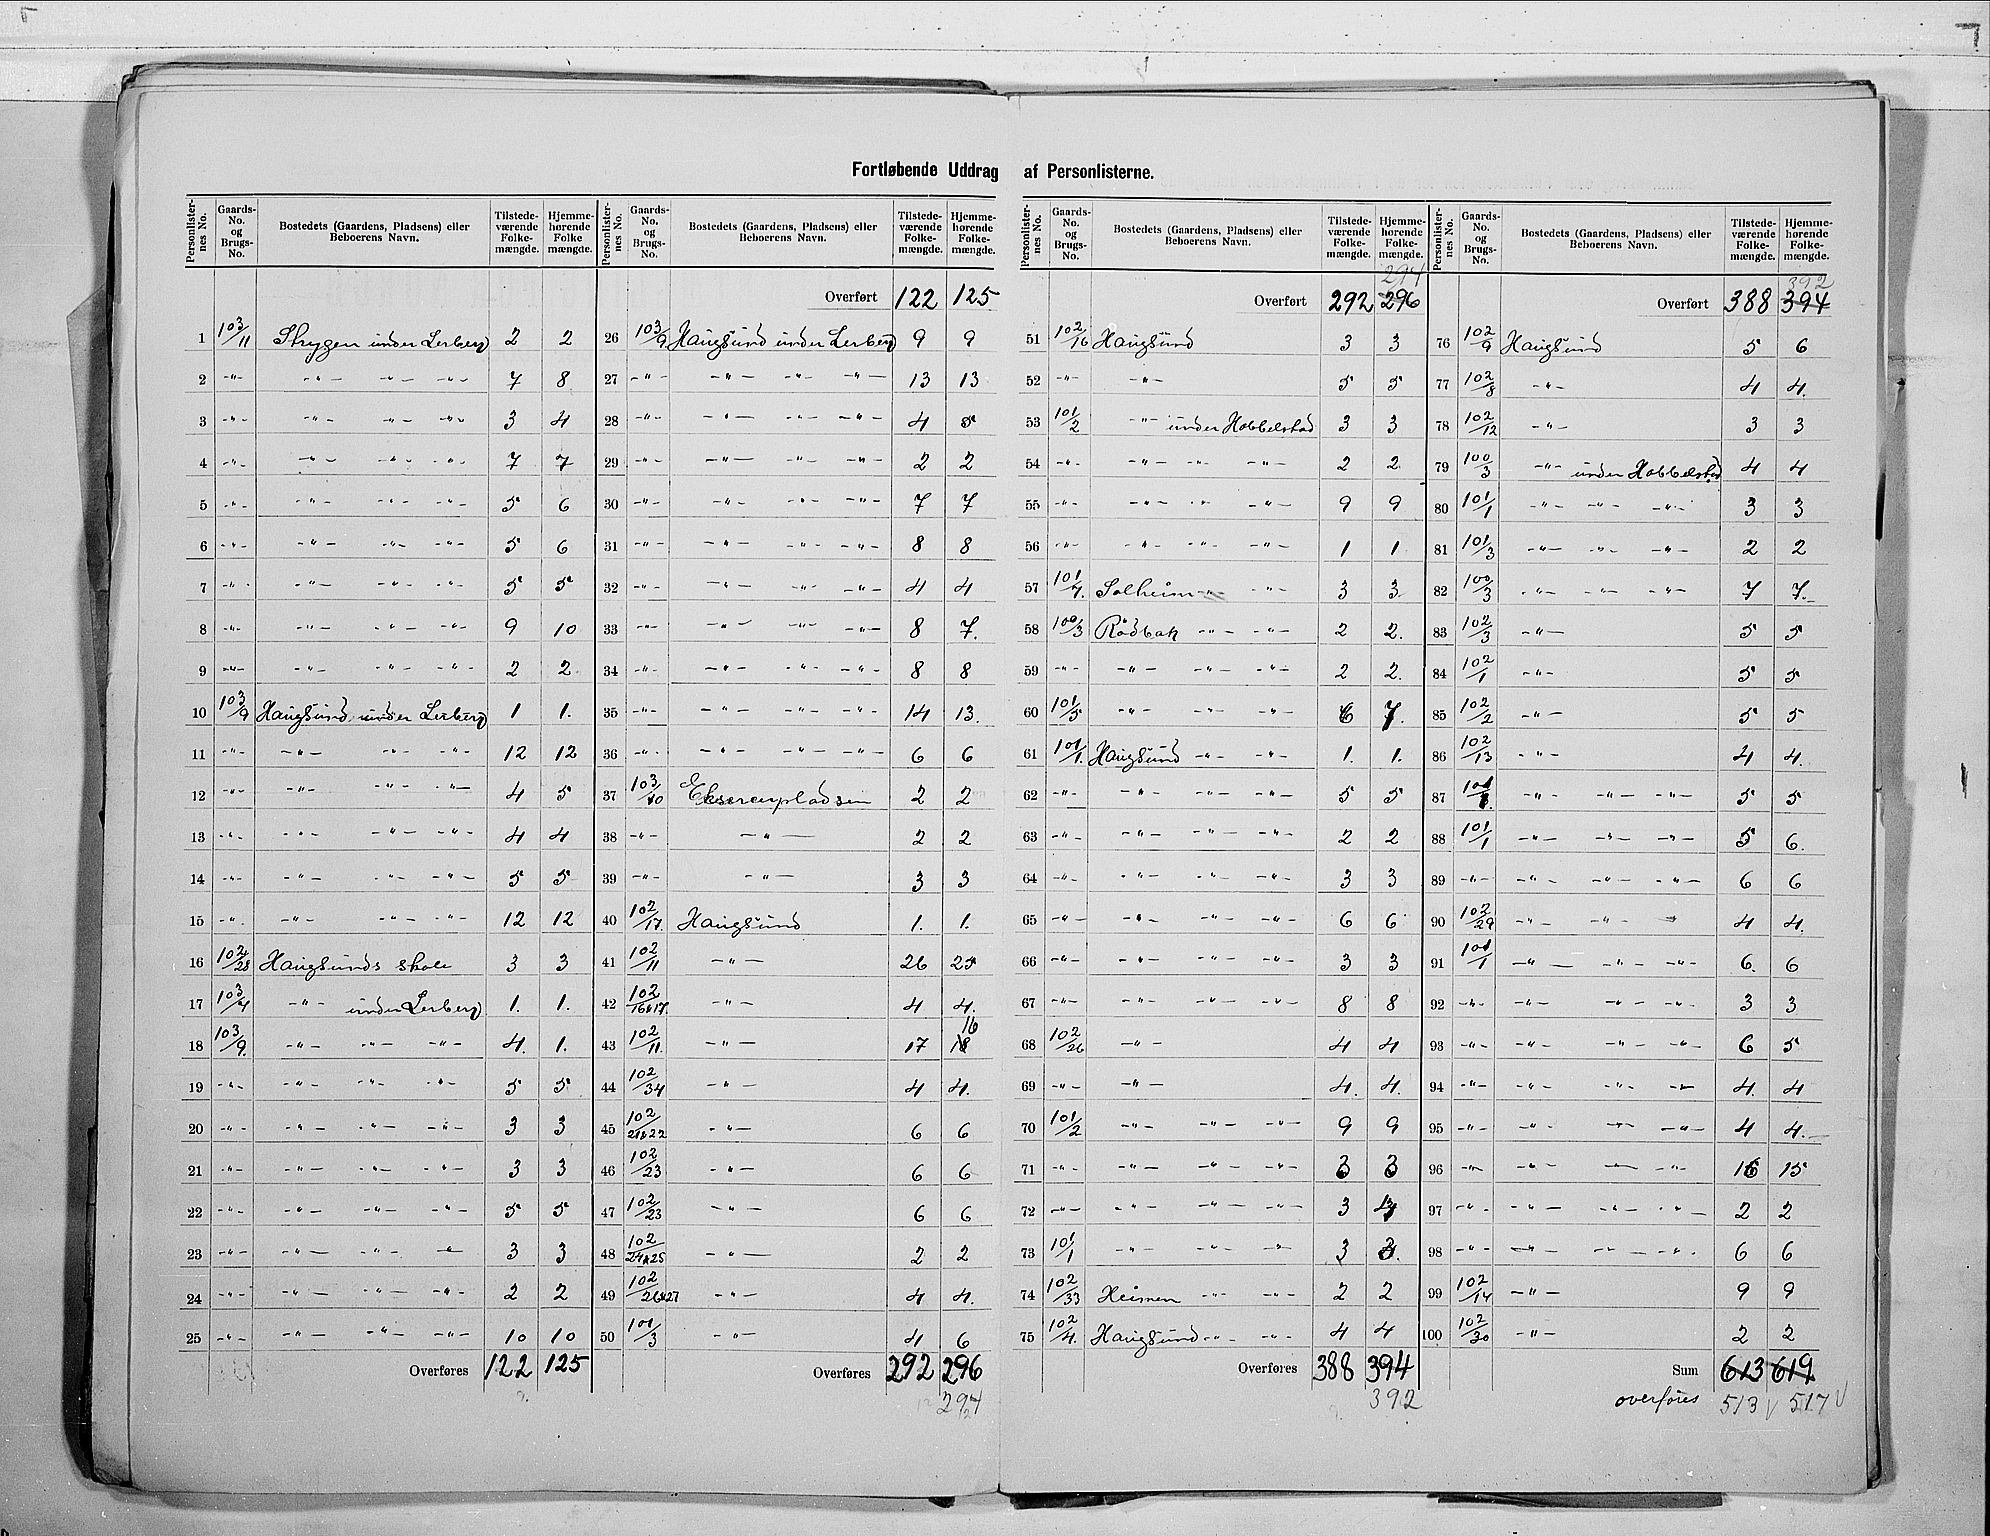 Fortløbende Uddrag af Personlisterne.
Personlisternes No. | Gaards-No. og Brugs-No. | Bostedets (Gaardens, Pladsens) eller Beboerens Navn. | Tilstedeværende Folkemængde. | Hjemmehørende Folkemængde.
1 103/11 Strygen under Lerberg 2 2
2 -"- -"- -"- -"- 7 8
3 -"- -"- -"- -"- 3 4
4 -"- -"- -"- -"- 7 7
5 -"- -"- -"- -"- 5 6
6 -"- -"- -"- -"- 5 6
7 -"- -"- -"- -"- 5 5
8 -"- -"- -"- -"- 9 10
9 -"- -"- -"- -"- 2 2
10 103/9 Haugsund under Lerberg 1 1.
11 -"- -"- -"- -"- 12 12
12 -"- -"- -"- -"- 4 5
13 -"- -"- -"- -"- 4 4
14 -"- -"- -"- -"- 5 5
15 -"- -"- -"- -"- 12 12
16 102/28 Haugsunds skole 3 3
17 103/4 -"- under Lerberg 1. 1.
18 103/9. -"- -"- -"- 4. 1.
19 -"- -"- -"- -"- 5 5
20 -"- -"- -"- -"- 3 3
21 -"- -"- -"- -"- 3 3
22 -"- -"- -"- -"- 5 5
23 -"- -"- -"- -"- 3 3
24 -"- -"- -"- -"- 2 2
25 -"- -"- -"- -"- 10 10
Overføres 122 125
Personlisternes No. | Gaards-No. og Brugs-No. | Bostedets (Gaardens, Pladsens) eller Beboerens Navn. | Tilstedeværende Folkemængde. | Hjemmehørende Folkemængde.
Overført 122 125
26 103/9 Haugsund under Lerberg 9 9
27 -"- -"- -"- -"- 13 13
28 -"- -"- -"- -"- 4 5
29 -"- -"- -"- -"- 2 2
30 -"- -"- -"- -"- 7 7
31 -"- -"- -"- -"- 8 8
32 -"- -"- -"- -"- 4 4
33 -"- -"- -"- -"- 8 7.
34 -"- -"- -"- -"- 8 8
35 -"- -"- -"- -"- 14 13.
36 -"- -"- -"- -"- 6 6
37 103/10 Ekserserpladsen 2 2
38 -"- -"- 2 2
39 -"- -"- 3 3
40 102/17. Haugsund 1. 1.
41 102/11 -"- 26 25
42 102/16&17. -"- 4 4.
43 102/11. -"- 17 18 16
44 102/34 -"- 4 4.
45 102/21&22 -"- 6 6
46 102/23 -"- 6 6
47 102/23 -"- 6 6
48 102/24&25 -"- 2 2
49 102/26&27 -"- 4 4.
50 101/3 -"- 4 6
Overføres 292 296
294
Personlisternes No. | Gaards-No. og Brugs-No. | Bostedets (Gaardens, Pladsens) eller Beboerens Navn. | Tilstedeværende Folkemængde. | Hjemmehørende Folkemængde.
294
Overført 292 296
51 102/16 Haugsund 3 3
52 -"- -"- 5 5
53 101/2 -"- under Hobbelstad 3 3
54 -"- -"- -"- -"- 2 2
55 -"- -"- -"- -"- 9 9
56 -"- -"- -"- -"- 1 1
57 101/4. Solheim -"- -"- 3 3
58 100/3 Rödbak -"- -"- 2 2.
59 -"- -"- -"- -"- 2 2.
60 101/5 -"- -"- -"- 6 7.
61 101/1. Haugsund -"- -"- 1. 1.
62 -"- -"- -"- -"- 5 5
63 -"- -"- -"- -"- 2 2
64 -"- -"- -"- -"- 3 3
65 -"- -"- -"- -"- 6 6
66 -"- -"- -"- -"- 3 3
67 -"- -"- -"- -"- 8 8
68 102/26 -"- 4 4
69 -"- -"- 4. 4.
70 101/2 -"- -"- -"- 9 9
71 -"- -"- -"- -"- 3 3
72 -"- -"- -"- -"- 3 4
73 101/1 -"- -"- -"- 3 3.
74 102/33 Heimen -"- -"- 2 2
75 102/4. Haugsund -"- -"- 4 4
Overføres 388 394
392
Personlisternes No. | Gaards-No. og Brugs-No. | Bostedets (Gaardens, Pladsens) eller Beboerens Navn. | Tilstedeværende Folkemængde. | Hjemmehørende Folkemængde.
392
Overført 388 394
76 102/9 Haugsund 5 6
77 102/8 -"- 4 4.
78 102/12 -"- 3 3
79 100/3 -"- under Hobbelstad 4 4
80 101/1 -"- -"- -"- 3 3
81 101/3 -"- -"- -"- 2 2
82 100/3 -"- -"- -"- 7 7.
83 102/3 -"- 5 5
84 102/1 -"- 5 5
85 102/2 -"- 5 5
86 102/13 -"- 4 4.
87 -"- -"- -"- 5 5
88 101/1 -"- -"- -"- 5 6.
89 -"- -"- -"- -"- 6 6
90 102/29 -"- -"- -"- 4 4.
91 101/1 -"- -"- -"- 6. 6
92 -"- -"- -"- -"- 3 3
93 -"- -"- -"- -"- 6 5
94 -"- -"- -"- -"- 4. 4
95 -"- -"- -"- -"- 4 4.
96 -"- -"- -"- -"- 16 15
97 -"- -"- -"- -"- 2 2
98 -"- -"- -"- -"- 6 6
99 102/14 -"- 9 9
100 102/30 -"- 2 2
Sum 613 619
overføres 513 √ 517 √